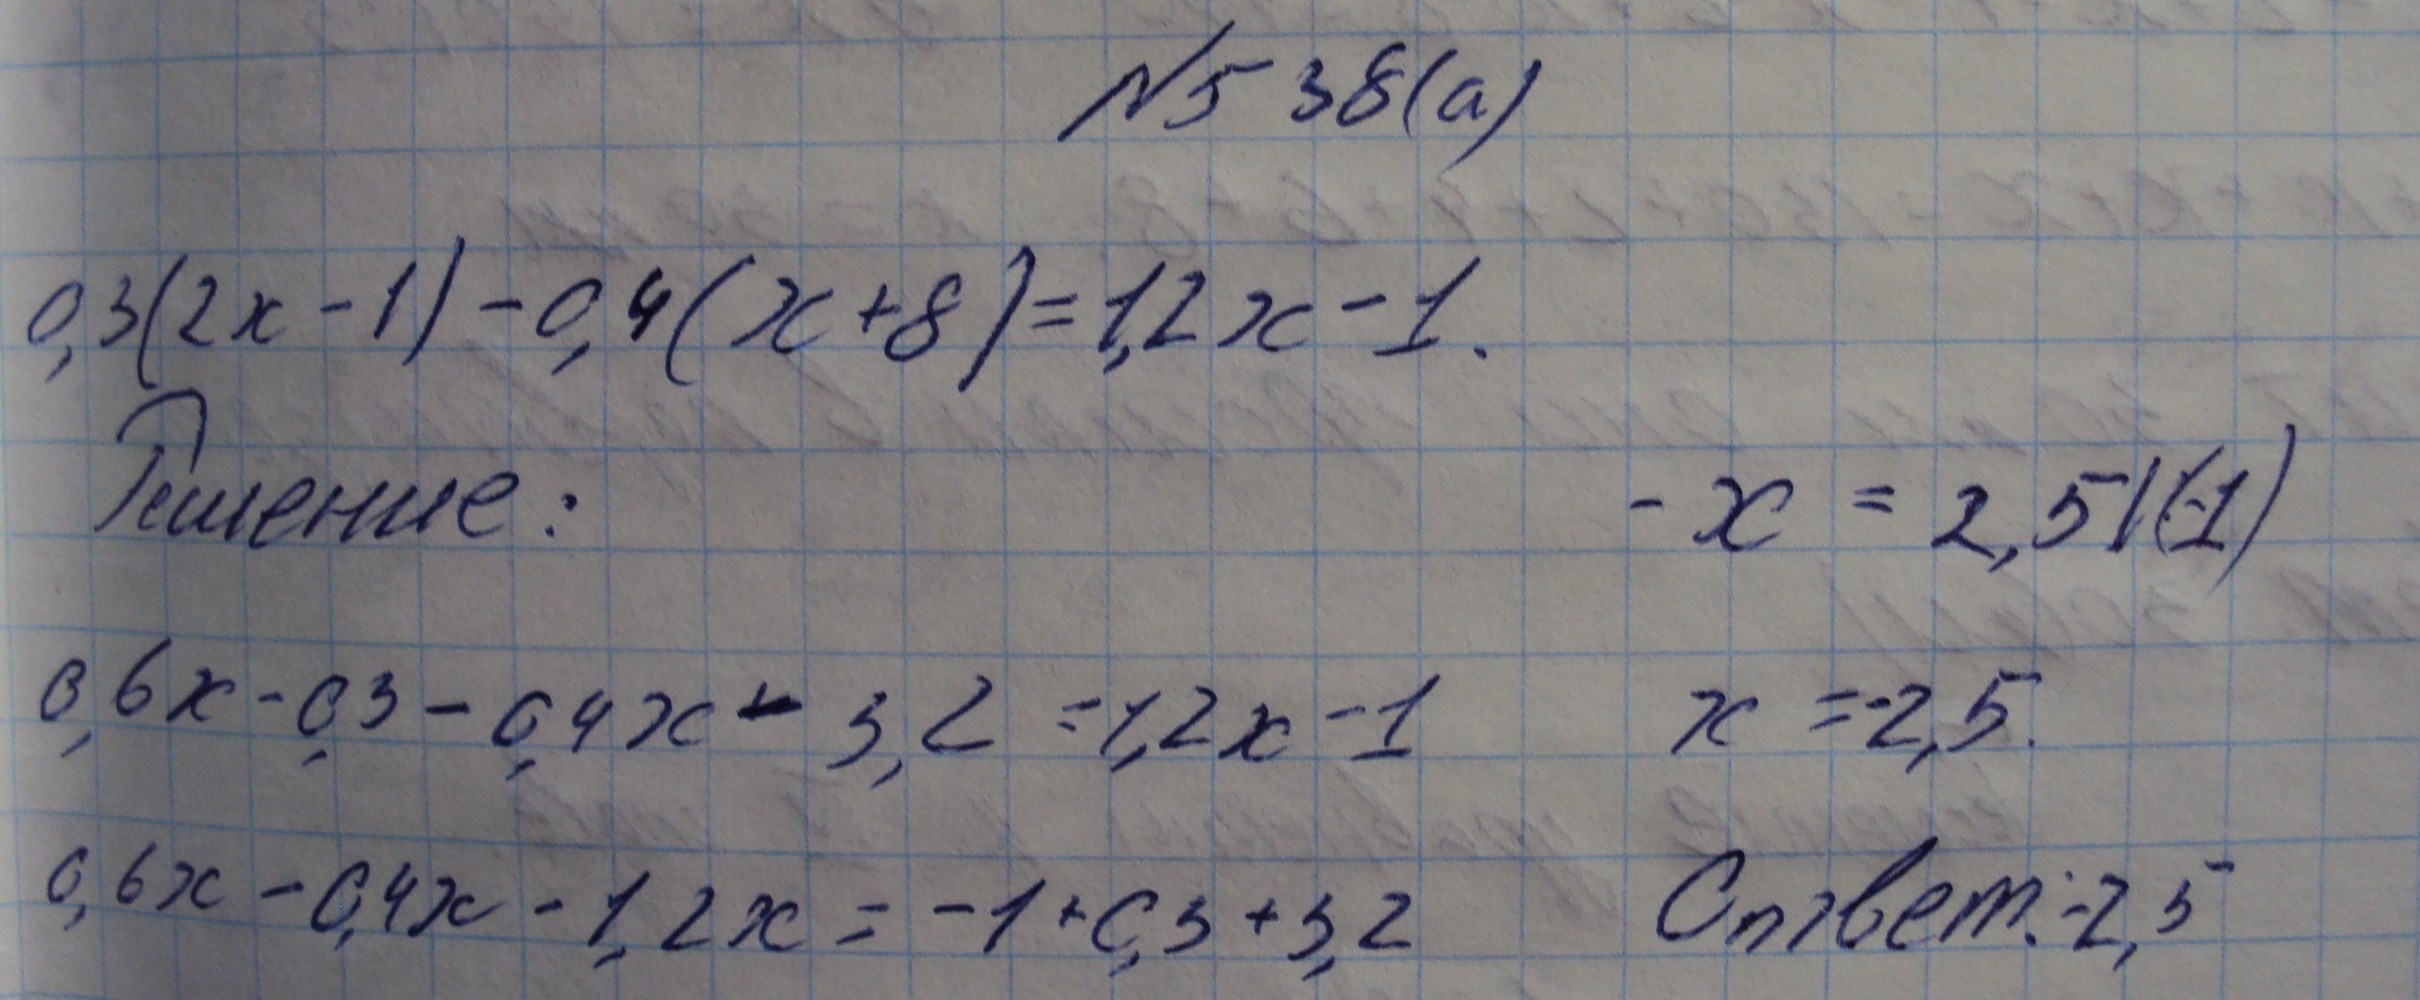 №538(а)
0,3(2x-1)-0,4(x+8)=1,2x-1.
Решение:
0,6x-0,3-0,4x-3,2=1,2x-1
0,6x-0,4x-1,2x=-1+0,3+3,2
-x=2,5|(-1)
x=-2,5.
Ответ:-2,5